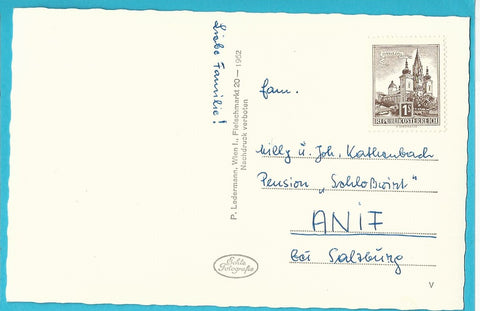 Liebe Familie!
P. Ledermann, Wien I., Fleischmarkt 20 — 1962
Nachdruck verboten
Echte
Fotografie
1S
REPUBLIK ÖSTERREICH
Fam.
Willy u. Joh. Kathenbach
Pension „Schloßwirt"
ANIF
bei Salzburg
V